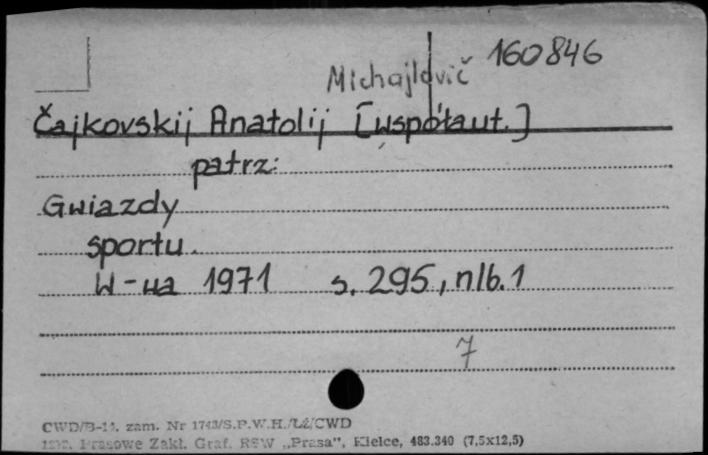 160846
Michajlovič
Čajkovskij Anatolij [współaut.]
patrz:
Gwiazdy
sportu.
W-wa 1971 s. 295, nlb. 1
7
zam. Nr 1743/S.P.W.H./Łź/CWD
Prasowe Zakł. Graf. RSW „Prasa", Kielce, 483.340 (7,5x12,5)